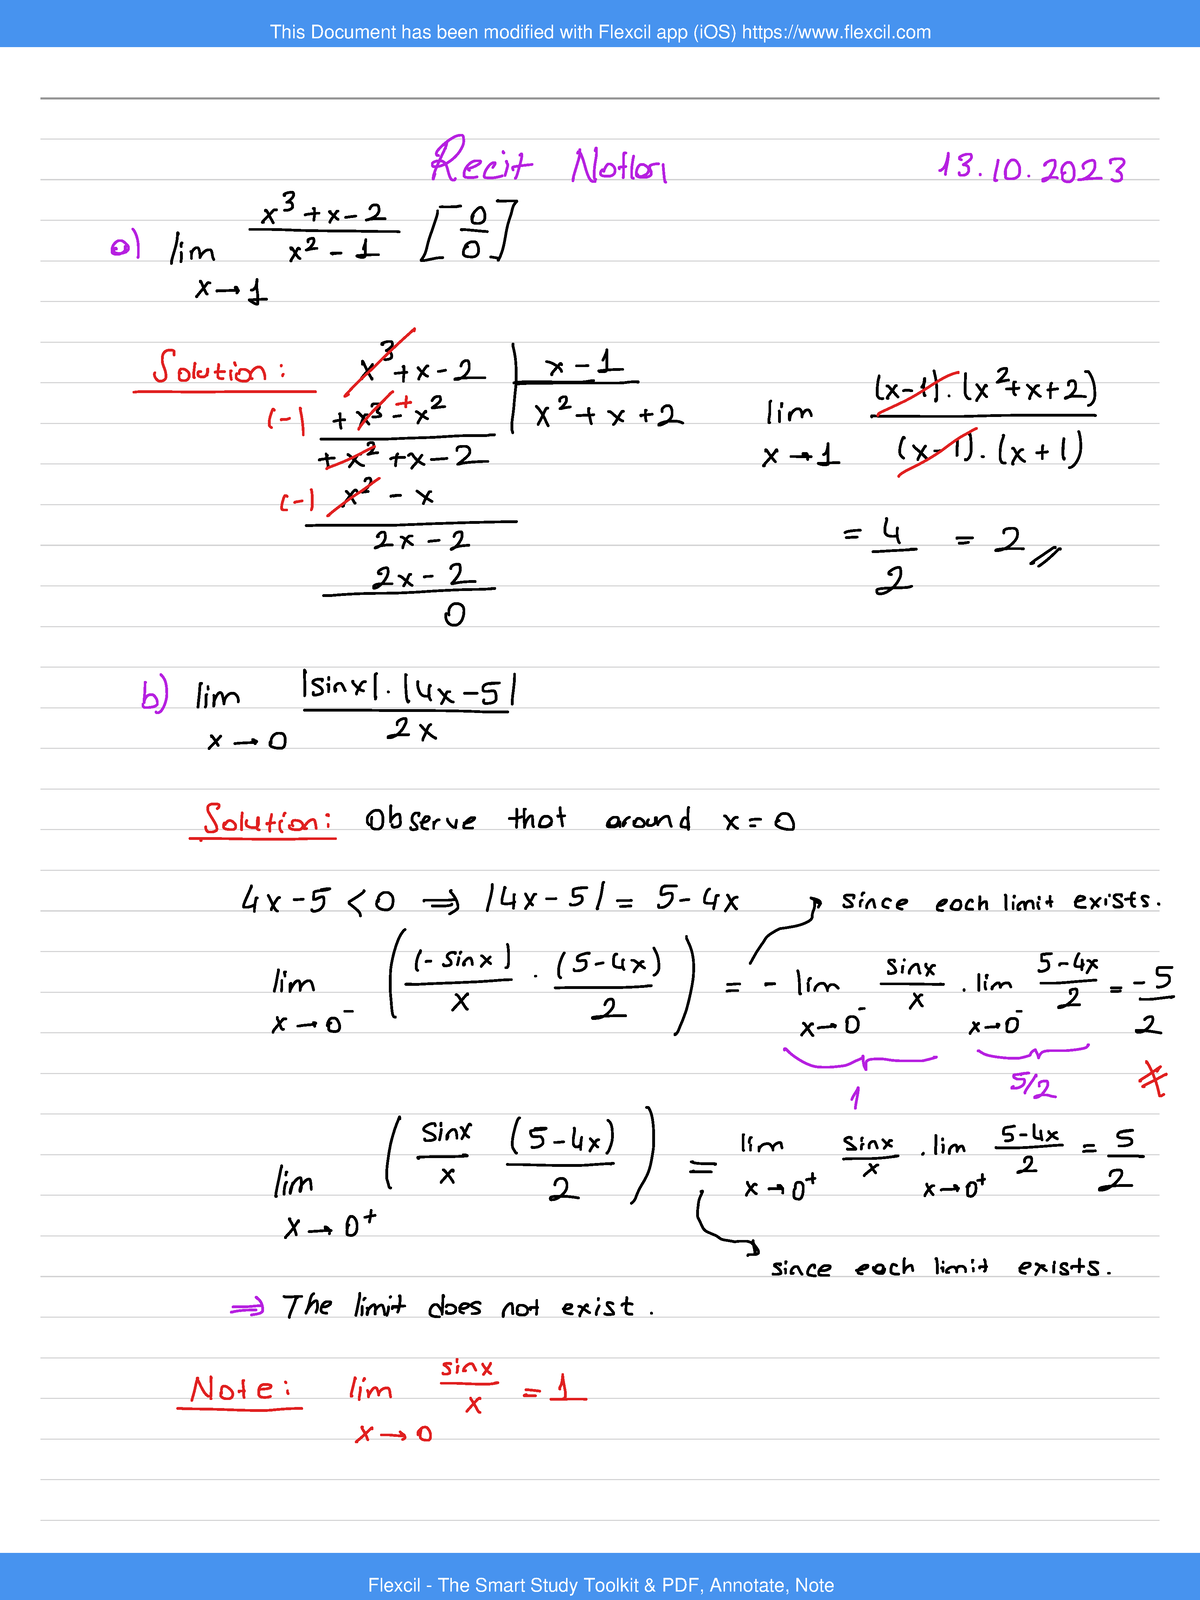 This Document has been modified with Flexcil app (iOS) https://www.flexcil.com
Recit Notları 13.10.2023
a) lim x→1 (x³+x-2)/(x²-1) [0/0]
Solution: x³+x-2 | x-1
(-) +x³-+x² | x²+x+2
+x²+x-2
(-) x²-x
2x-2
2x-2
0
lim x→1 ((x-1).(x²+x+2))/((x-1).(x+1))
= 4/2 = 2 //
b) lim x→0 (|sinx|.|4x-5|)/(2x)
Solution: Observe that around x=0
4x-5<0 ⇒ |4x-5| = 5-4x
since each limit exists.
lim x→0⁻ ((-sinx)/x . (5-4x)/2) = - lim x→0⁻ sinx/x . lim x→0⁻ (5-4x)/2 = -5/2
1 5/2 ≠
lim x→0⁺ (sinx/x (5-4x)/2) = lim x→0⁺ sinx/x . lim x→0⁺ (5-4x)/2 = 5/2
since each limit exists.
⇒ The limit does not exist.
Note: lim x→0 sinx/x = 1
Flexcil - The Smart Study Toolkit & PDF, Annotate, Note